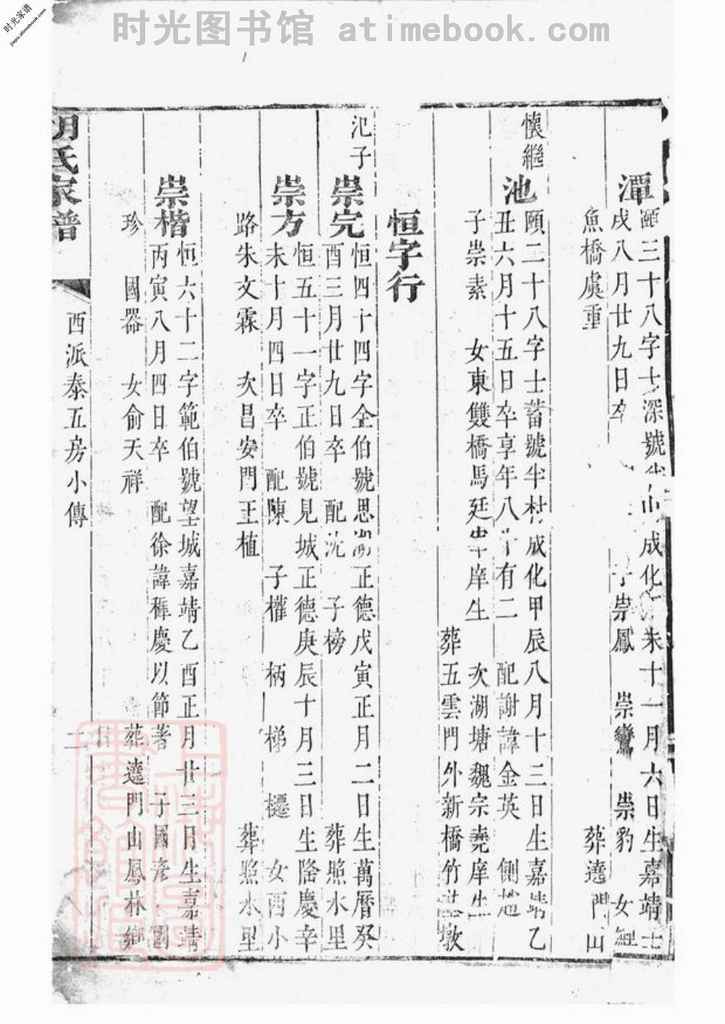 时光家谱
时光图书馆 atimebook.com
潭
頤三十八字士深號 山成化 未十一月六日生嘉靖
戌八月廿九日卒 子崇鳳 崇鸞 崇豹 女
魚橋虞重 葬遶門山
懷繼
池
頤二十八字士蓄號半村成化甲辰八月十三日生嘉靖乙
丑六月十五日卒享年八十有二 配謝諱金英 側趙
子崇素 女東雙橋馬廷 庠生 次湖塘魏宗堯庠生
葬五雲門外新橋竹 墩
恒字行
汜子
崇完
恒四十四字全伯號思湖正德戊寅正月二日生萬曆癸
酉三月廿九日卒 配沈 子榜 葬照水里
崇方
恒五十一字正伯號見城正德庚辰十月三日生隆慶辛
未十月四日卒 配陳 子權 柄 梯 櫏 女酉小
路朱文霖 次昌安門王植 葬照水里
崇楷
恒六十二字範伯號望城嘉靖乙酉正月廿三日生嘉靖
丙寅八月四日卒 配徐諱穉慶以節著 子國彥 國
珍 國器 女俞天祥 葬遶門山鳳林鄉
胡氏家譜
西派泰五房小傳 二